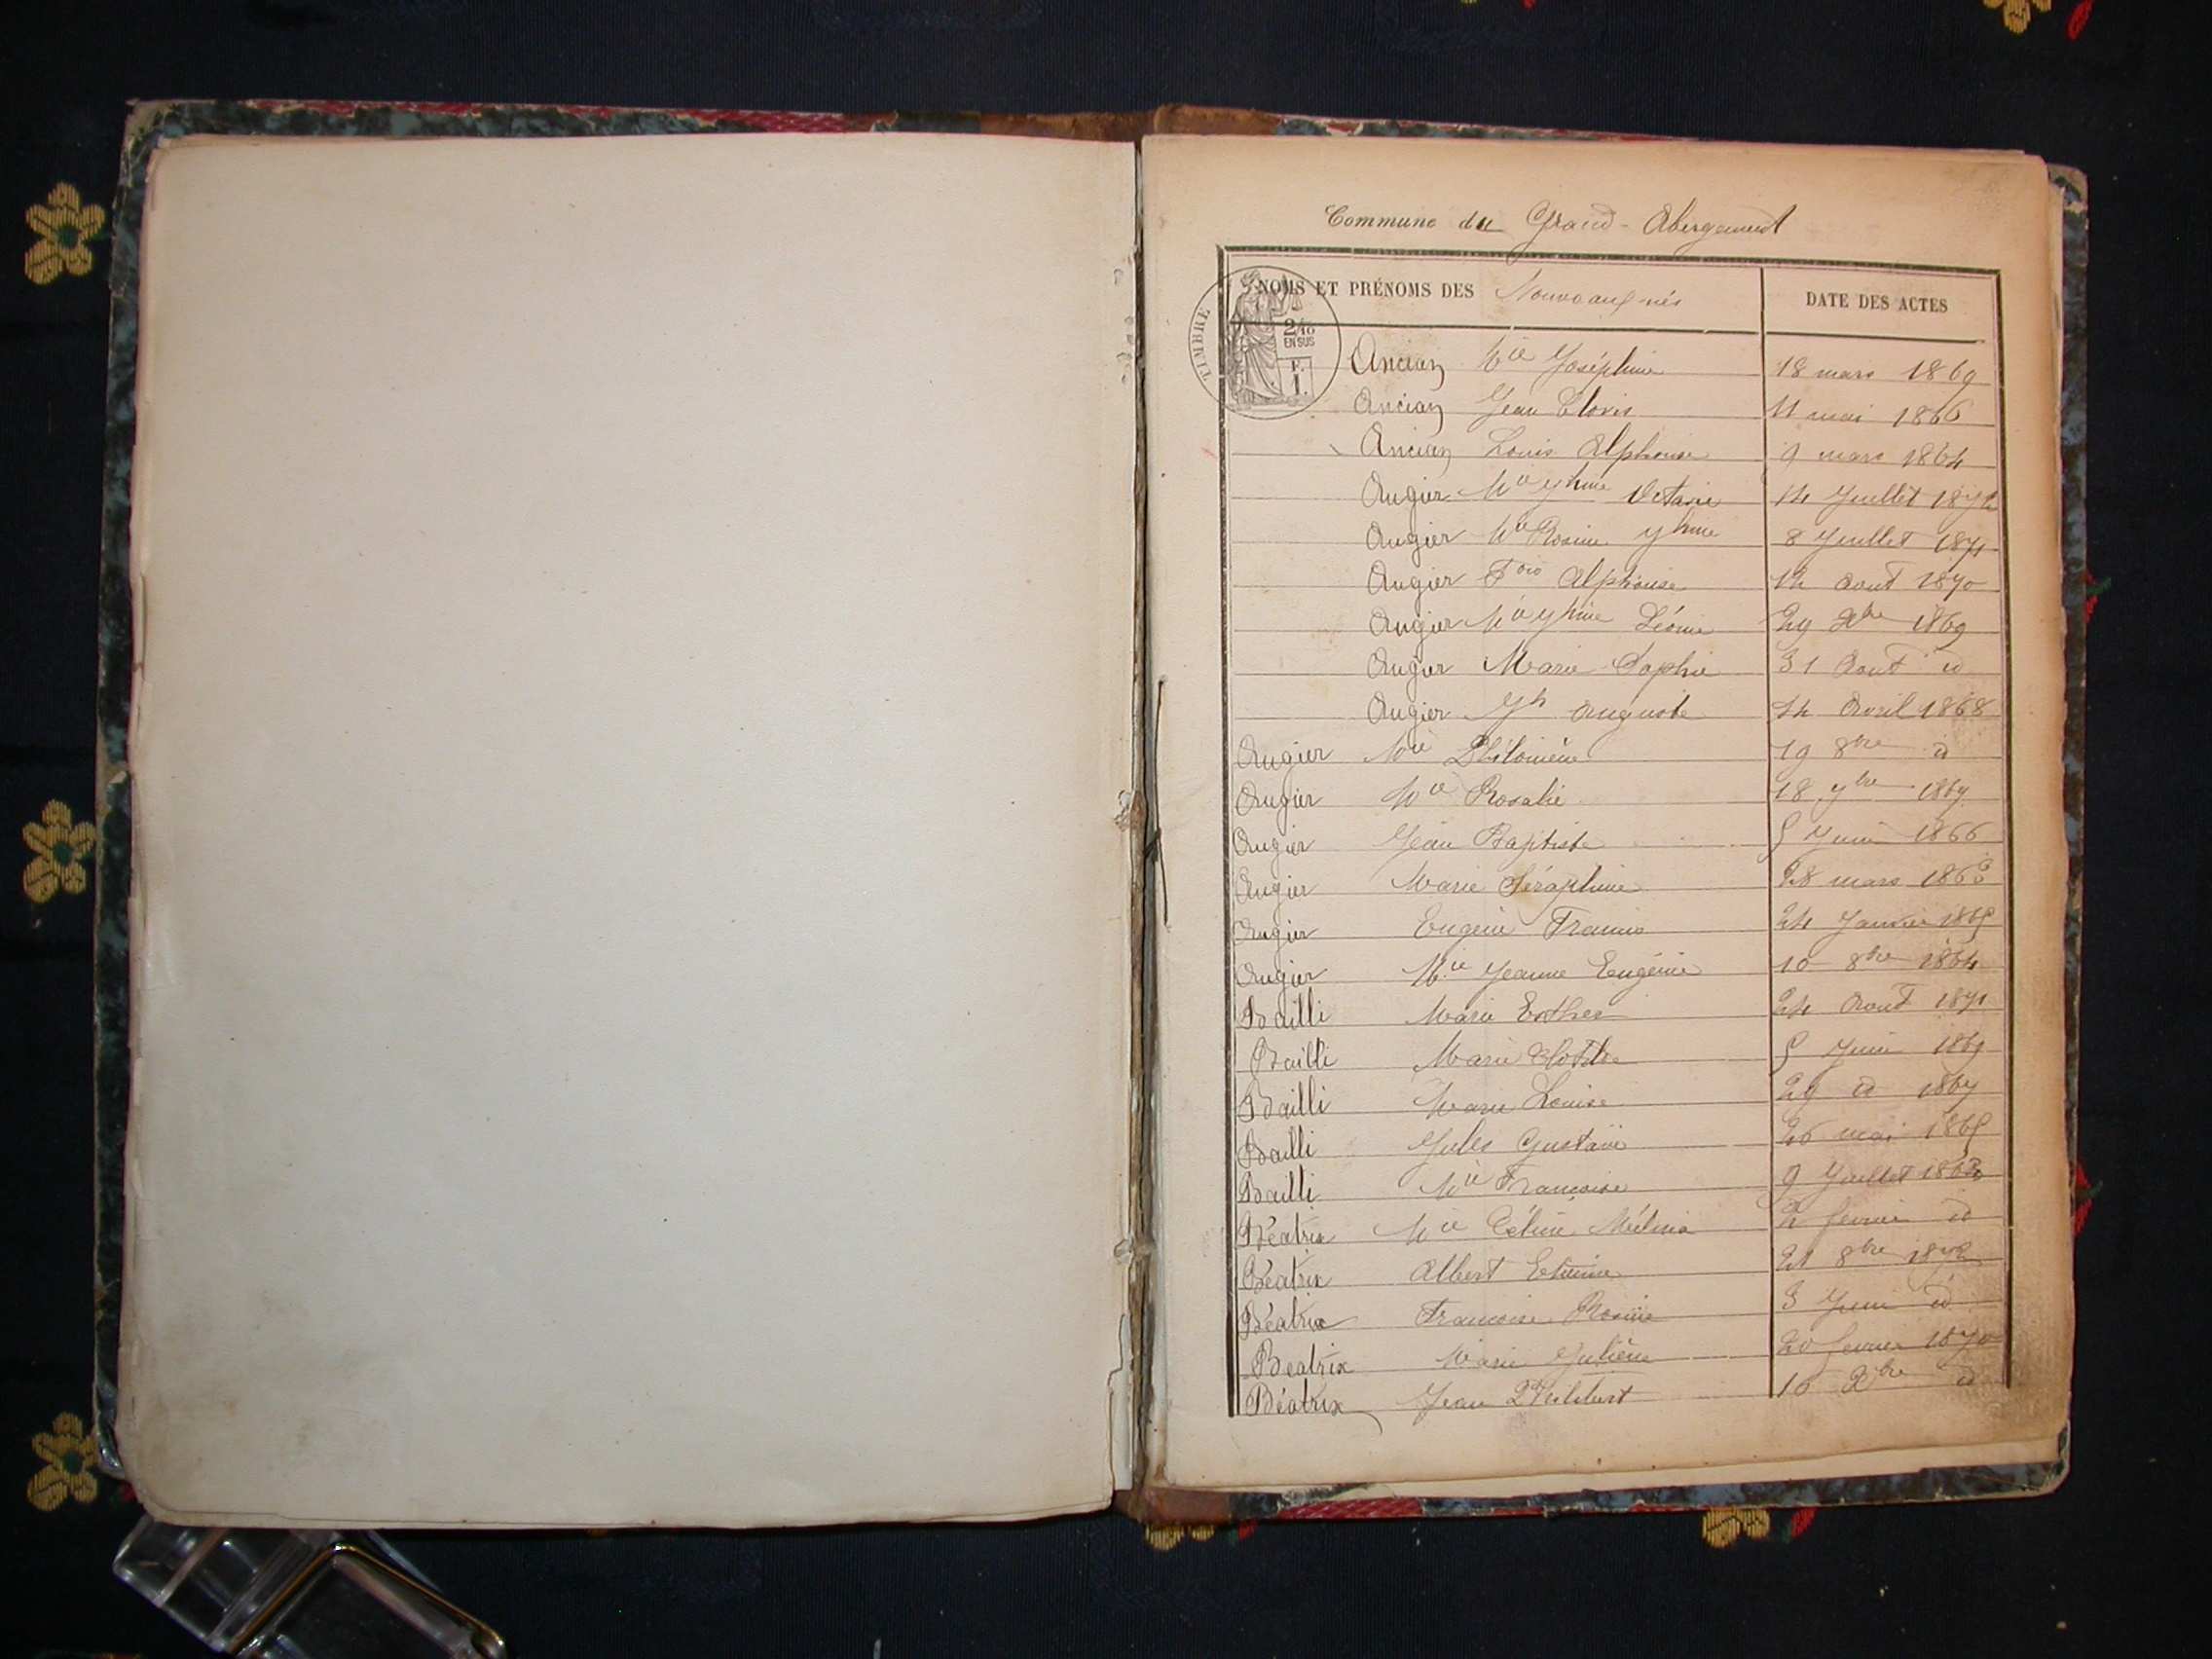 Commune du Grand-Abergement
NOMS ET PRÉNOMS DES Nouveaux-nés DATE DES ACTES
TIMBRE
2/10
EN SUS
F.
1.
Ancian Mie Joséphine 18 mars 1869
Ancian Jean Clovis 11 mai 1866
Ancian Louis Alphonse 9 mars 1864
Augier Mie Jhine Octavie 14 Juillet 1872
Augier Mie Rosine Jhine 8 Juillet 1871
Augier Fois Alphonse 14 Aout 1870
Augier Mie Jhine Léonie 29 Xbre 1869
Augier Marie Sophie 31 Aout id
Augier Jh Auguste 14 Avril 1868
Augier Mie Philomène 19 8bre id
Augier Mie Rosalie 18 7bre 1867
Augier Jean Baptiste 5 Juin 1866
Augier Marie Séraphine 28 mars 1863
Augier Eugène Francis 24 Janvier 1865
Augier Mie Jeanne Eugénie 10 8bre 1864
Bailli Marie Esther 24 Aout 1871
Bailli Marie Clotilde 5 Juin 1869
Bailli Marie Louise 29 id 1867
Bailli Jules Gustave 26 mai 1865
Bailli Mie Françoise 9 Juillet 1863
Béatrix Mie Céline Mélina 2 fevrier id
Béatrix Albert Etienne 21 8bre 1872
Béatrix Francoise Rosine 3 Juin id
Beatrix Marie Julienne 20 fevrier 1870
Béatrix Jean Philibert 10 Xbre id